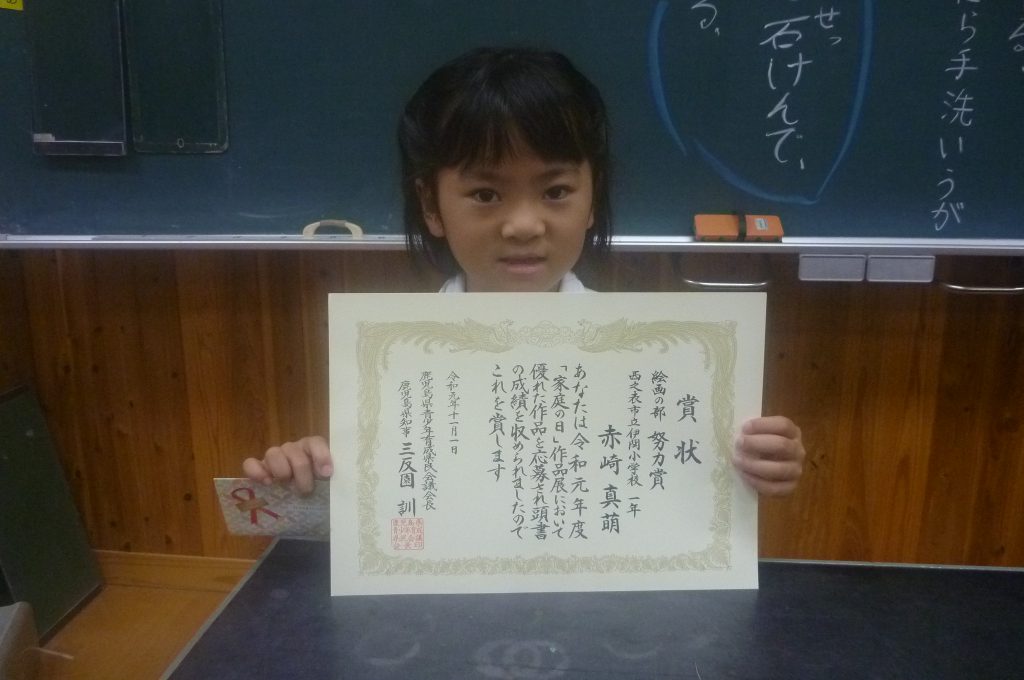 る、
たら手洗いうが
せっ
石けんで、
る、
賞状
絵画の部 努力賞
西之表市立伊関小学校 一年
赤崎 真萌
あなたは令和元年度
「家庭の日」作品展において
優れた作品を応募され頭書
の成績を収められましたので
これを賞します
令和元年十一月一日
鹿児島県青少年育成県民会議会長
鹿児島県知事 三反園 訓